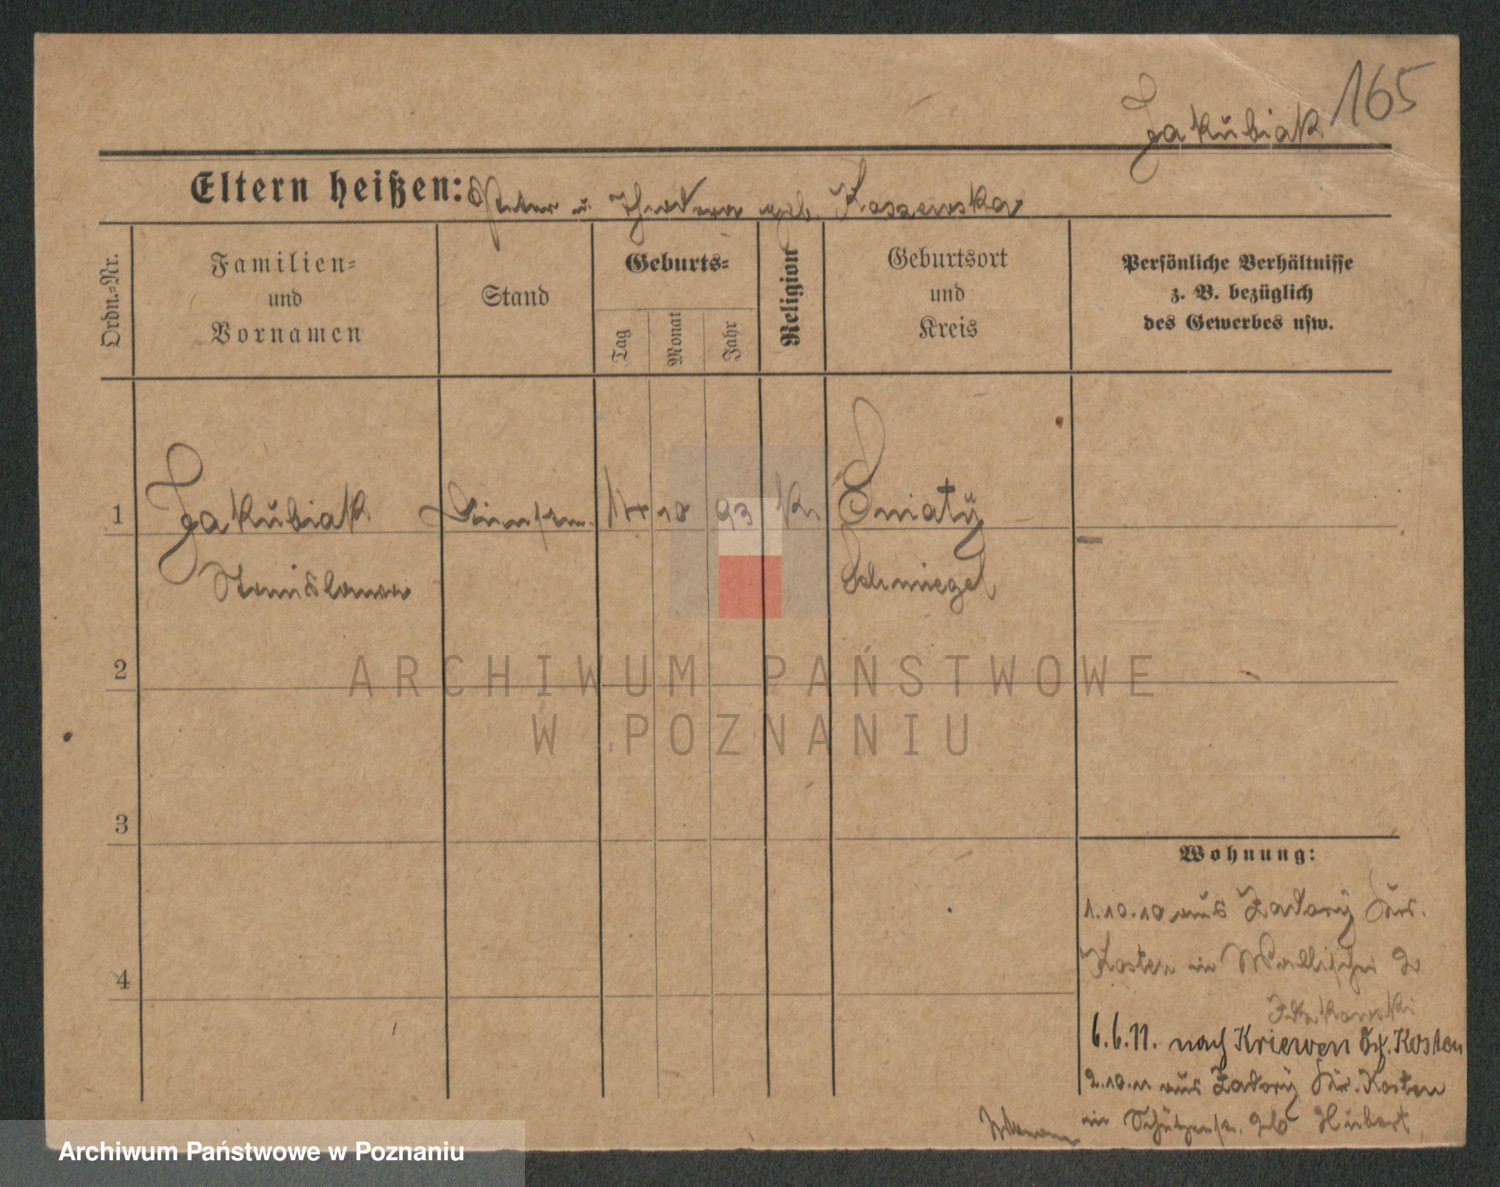 165
Jakubiak
Eltern heißen: Peter u. Theodora geb. Koszewska
Ordn.-Nr.
Familien-
und
Vornamen
Stand
Geburts-
Tag
Monat
Jahr
Religion
Geburtsort
und
Kreis
Persönliche Verhältnisse
z. B. bezüglich
des Gewerbes usw.
1
Jakubiak
14 10 93 k.
Sniaty
Stanislawa
Schmiegel
2
ARCHIWUM PAŃSTWOWE
W POZNANIU
3
Wohnung:
1.10.10 aus Zadory Krs.
Kosten in Wallischei
4
6.6.11. nach Kriewen Kr. Kosten
2.10.11 aus Zadory Kr. Kosten
in Schützenstr. Hubert
Archiwum Państwowe w Poznaniu